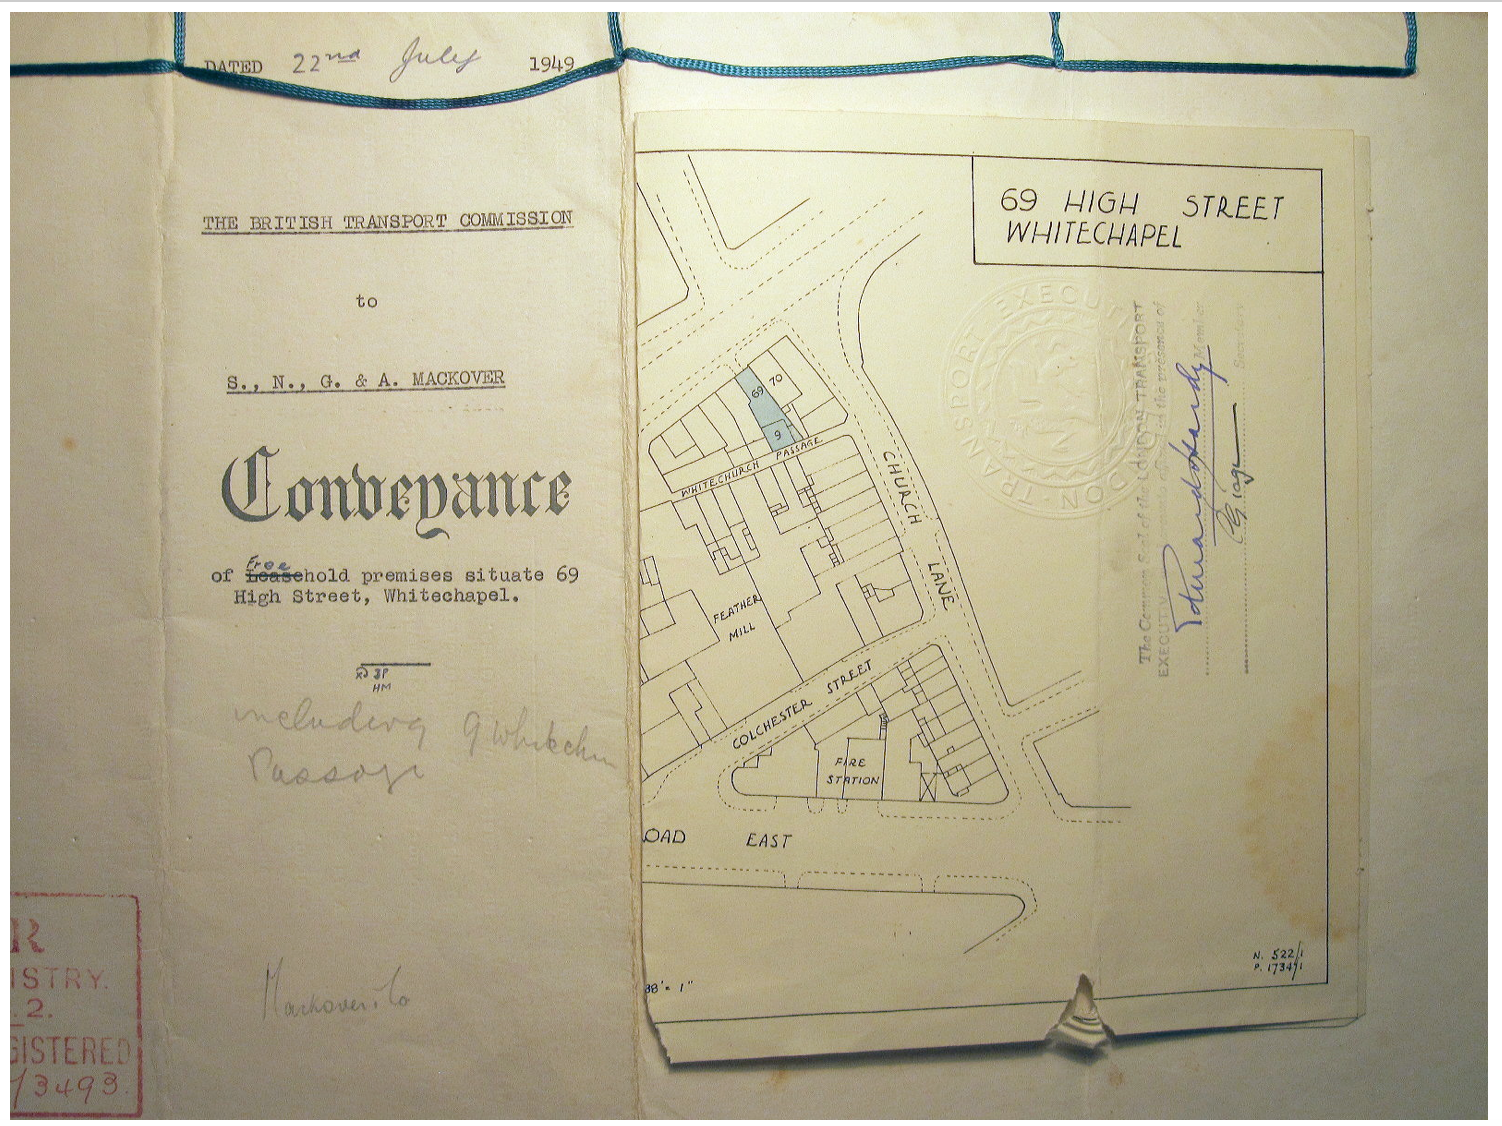 DATED 22nd July 1949
THE BRITISH TRANSPORT COMMISSION
to
S., N., G. & A. MACKOVER
Conveyance
Free
of Leasehold premises situate 69
High Street, Whitechapel.
HM
including 9 Whitechu
Passage
Mackover & Co
R
ISTRY.
.2.
GISTERED
/3493.
69 HIGH STREET
WHITECHAPEL
69
70
9
WHITECHURCH PASSAGE
CHURCH
LANE
FEATHER
MILL
COLCHESTER STREET
FIRE
STATION
OAD EAST
88' = 1"
N. 522/1
P. 17347/1
TRANSPORT EXECU
DON TRANS
The Common Seal of the LONDON TRANSPORT
EXECUTIVE in the presence of
Member
Secretary